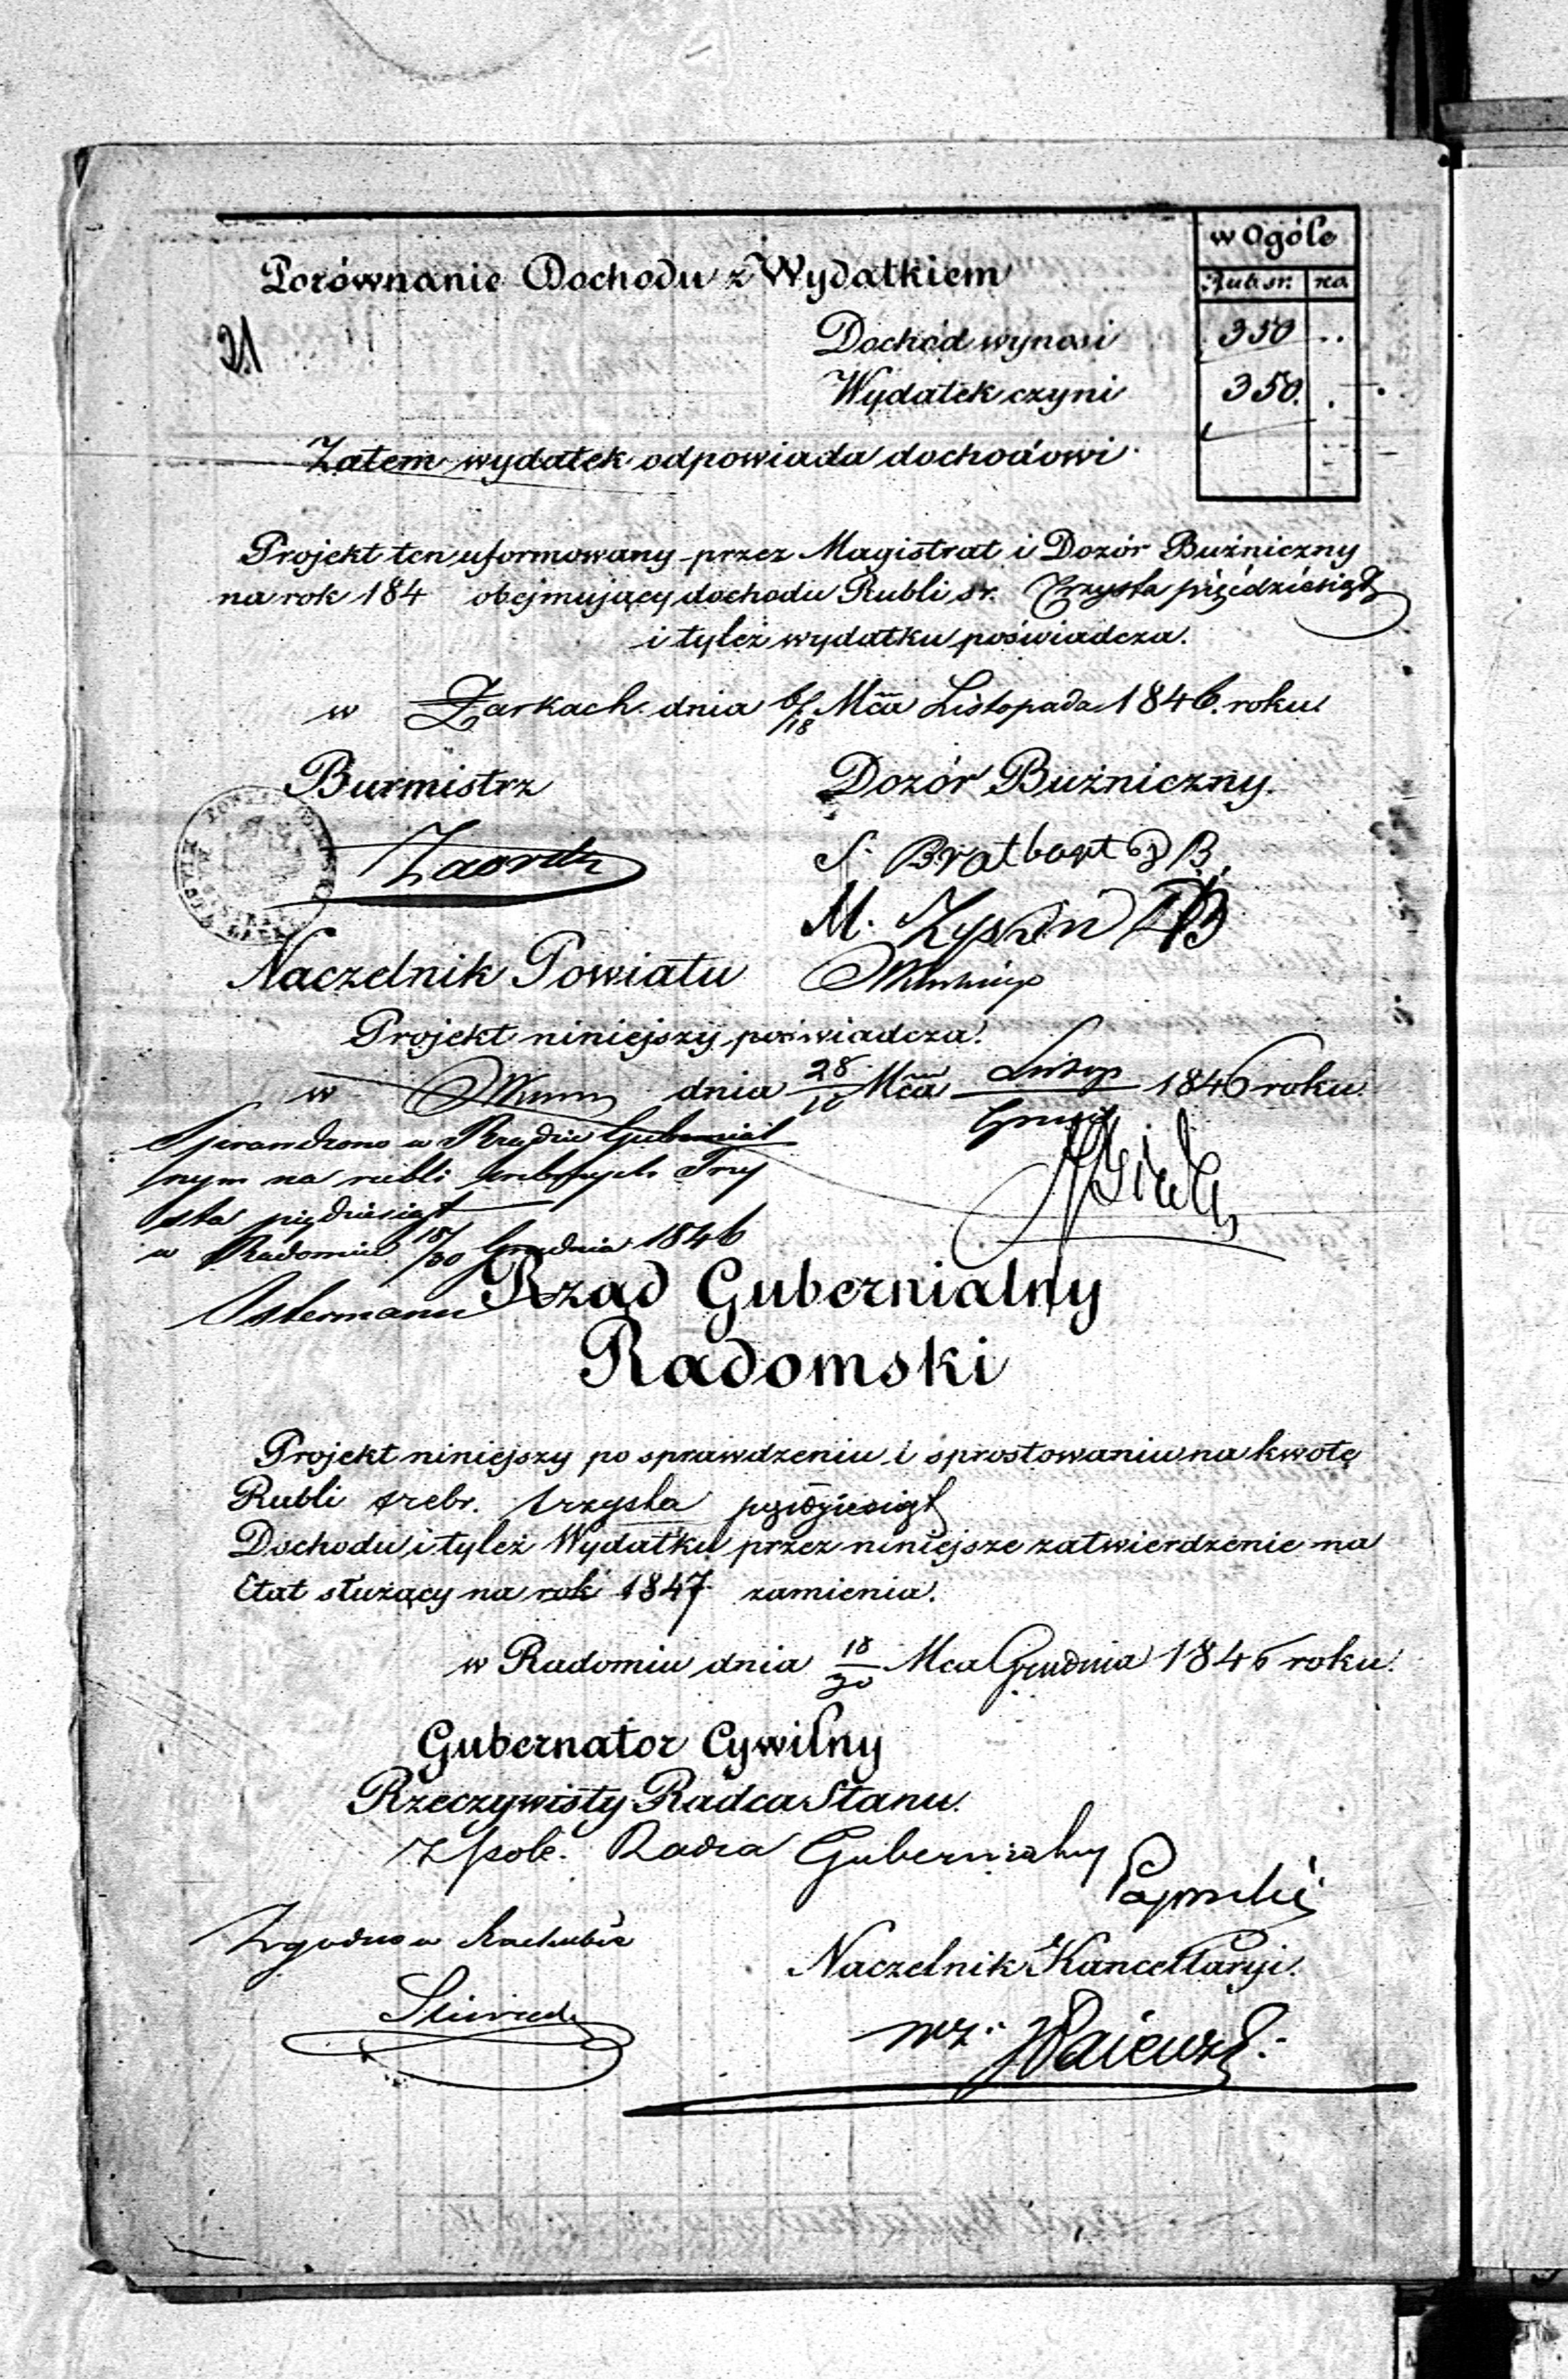 w Ogóle
Porównanie Dochodu z Wydatkiem
Rub. sr. ko
21
Dochód wynosi 350 ..
Wydatek czyni 350. .
Zatem wydatek odpowiada dochodowi
Projekt ten uformowany przez Magistrat i Dozór Bużniczny
na rok 184 obejmujący dochodu Rubli sr. Trzysta pięćdziesiąt
i tyleż wydatku poświadcza.
w Żarkach dnia 6/18 Mca Listopada 1846. roku
Burmistrz Dozór Bużniczny.
S. Bratbart DB.
M. Zyskin DB
Naczelnik Powiatu
Projekt niniejszy poświadcza.
w dnia 28/10 Mca Listop/Grud 1846 roku
Sprawdzono w Rządzie Gubernial
nym na rubli srebrnych Trzy
sta piędziesiąt
w Radomiu 18/30 Grudnia 1846
Ostermann
Rząd Gubernialny
Radomski
Projekt niniejszy po sprawdzeniu i sprostowaniu na kwotę
Rubli srebr. trzysta pięździesiąt
Dochodu i tyleż Wydatku przez niniejsze zatwierdzenie na
Etat służący na rok 1847 zamienia.
w Radomiu dnia 18/30 Mca Grudnia 1846 roku.
Gubernator Cywilny
Rzeczywisty Radca Stanu.
Radca Gubernialny
Zgodno w Rachubie
Naczelnik Kancellaryi.
wz.